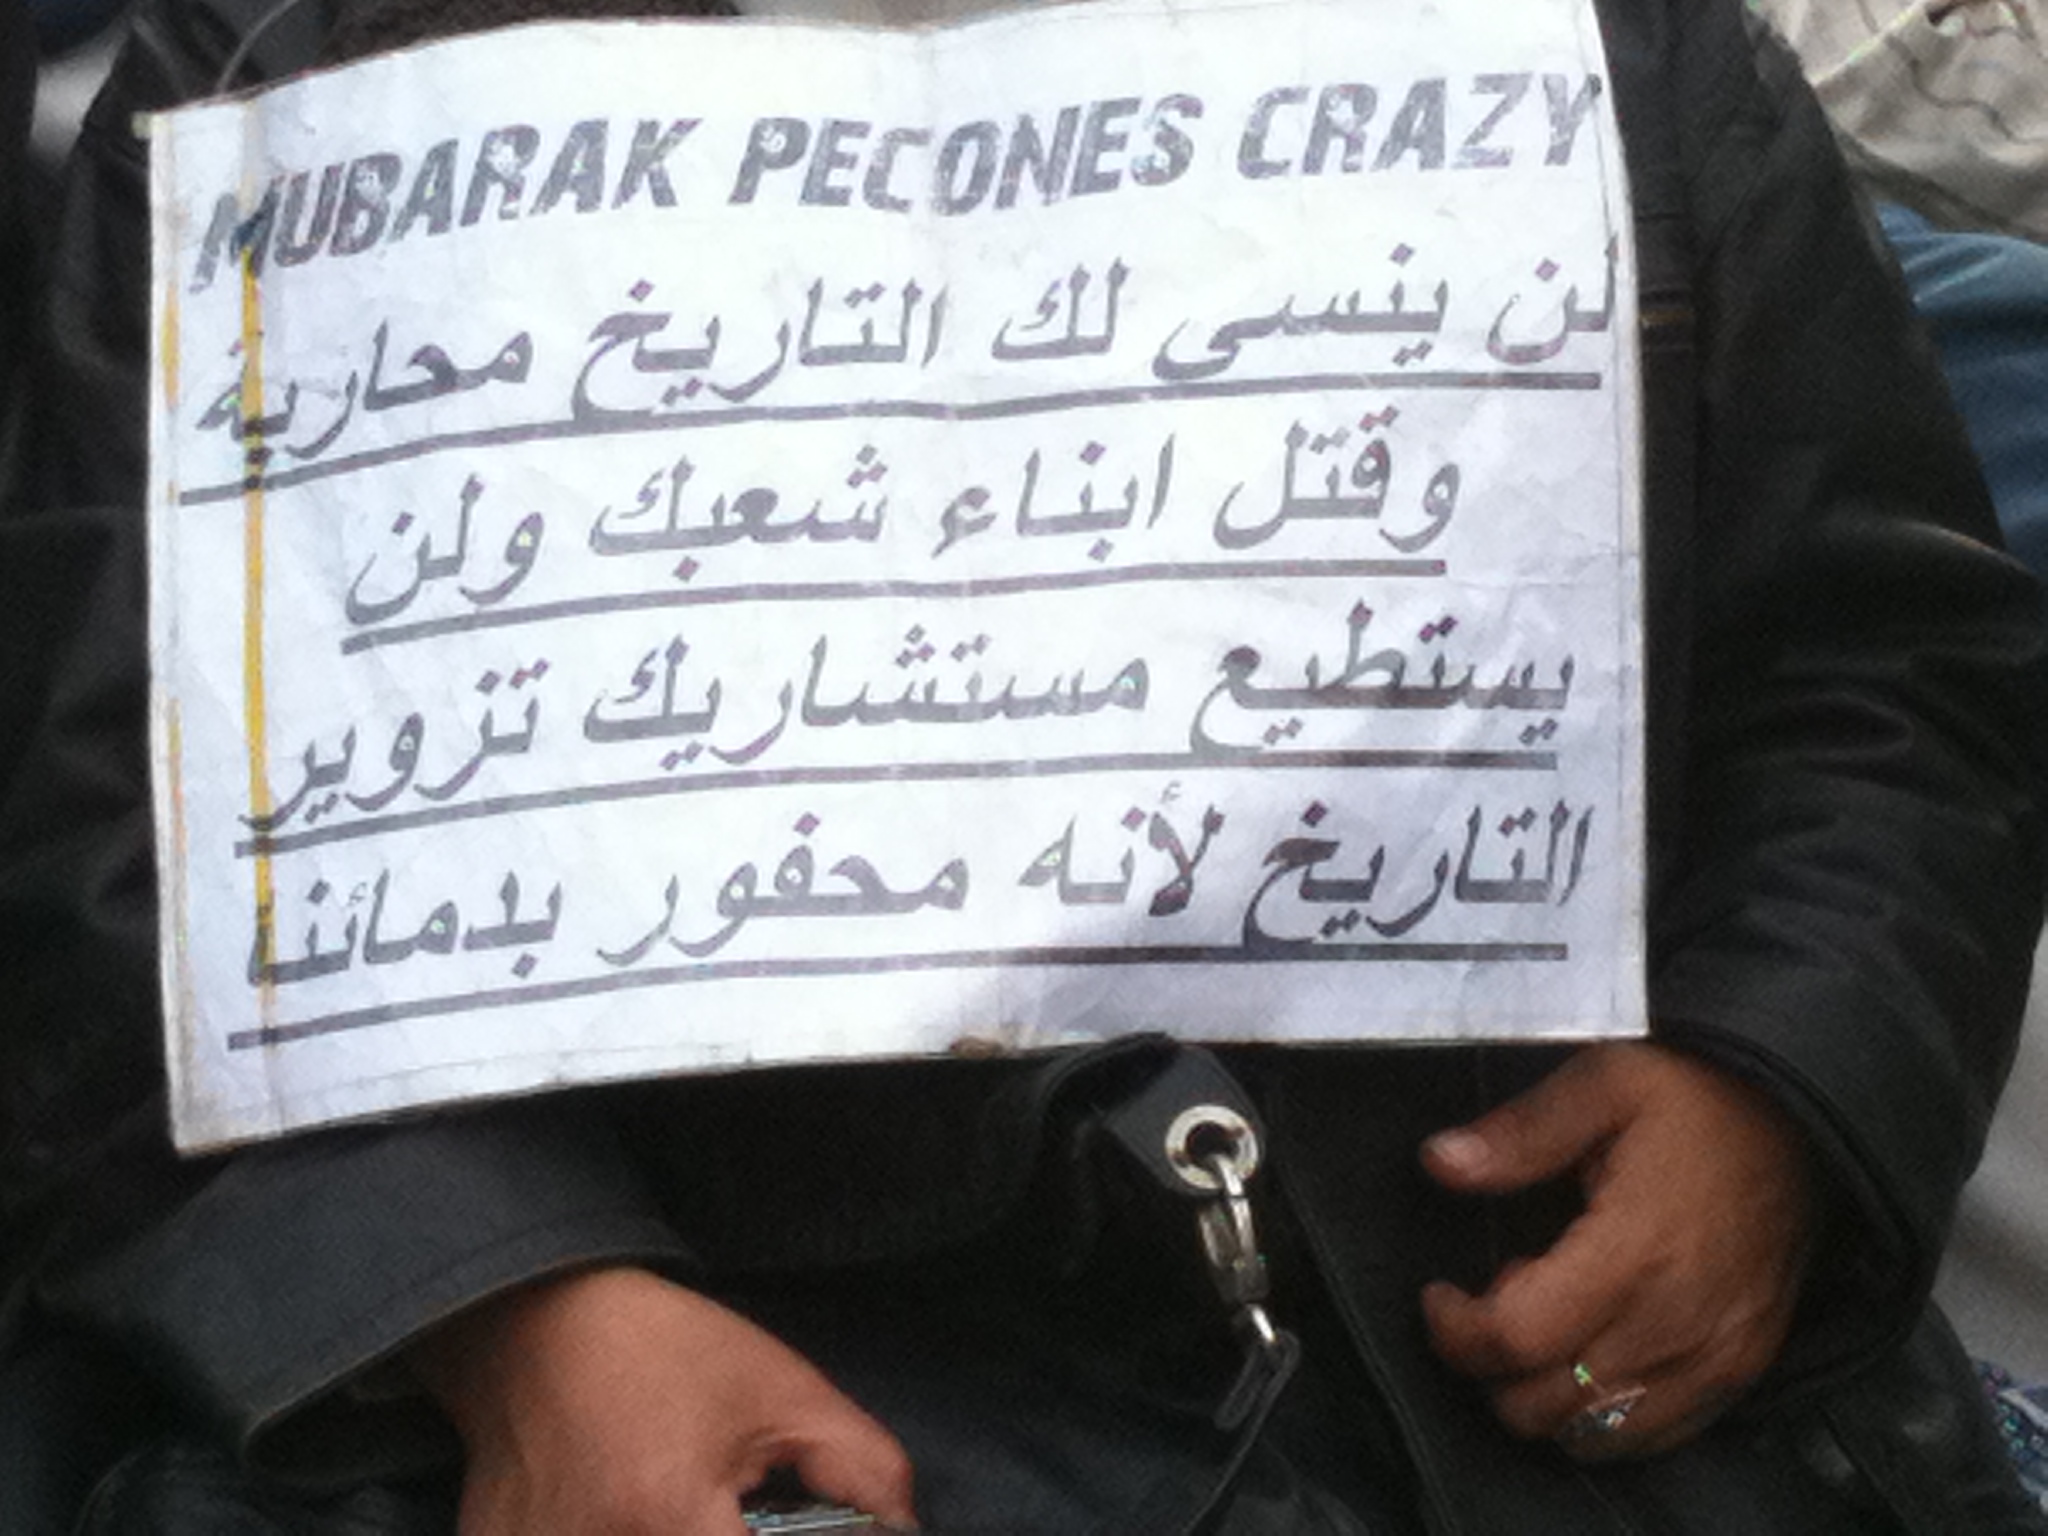 MUBARAK PECONES CRAZY
لن ينسى لك التاريخ محاربة
وقتل ابناء شعبك ولن
يستطيع مستشاريك تزوير
التاريخ لأنه محفور بدمائنا